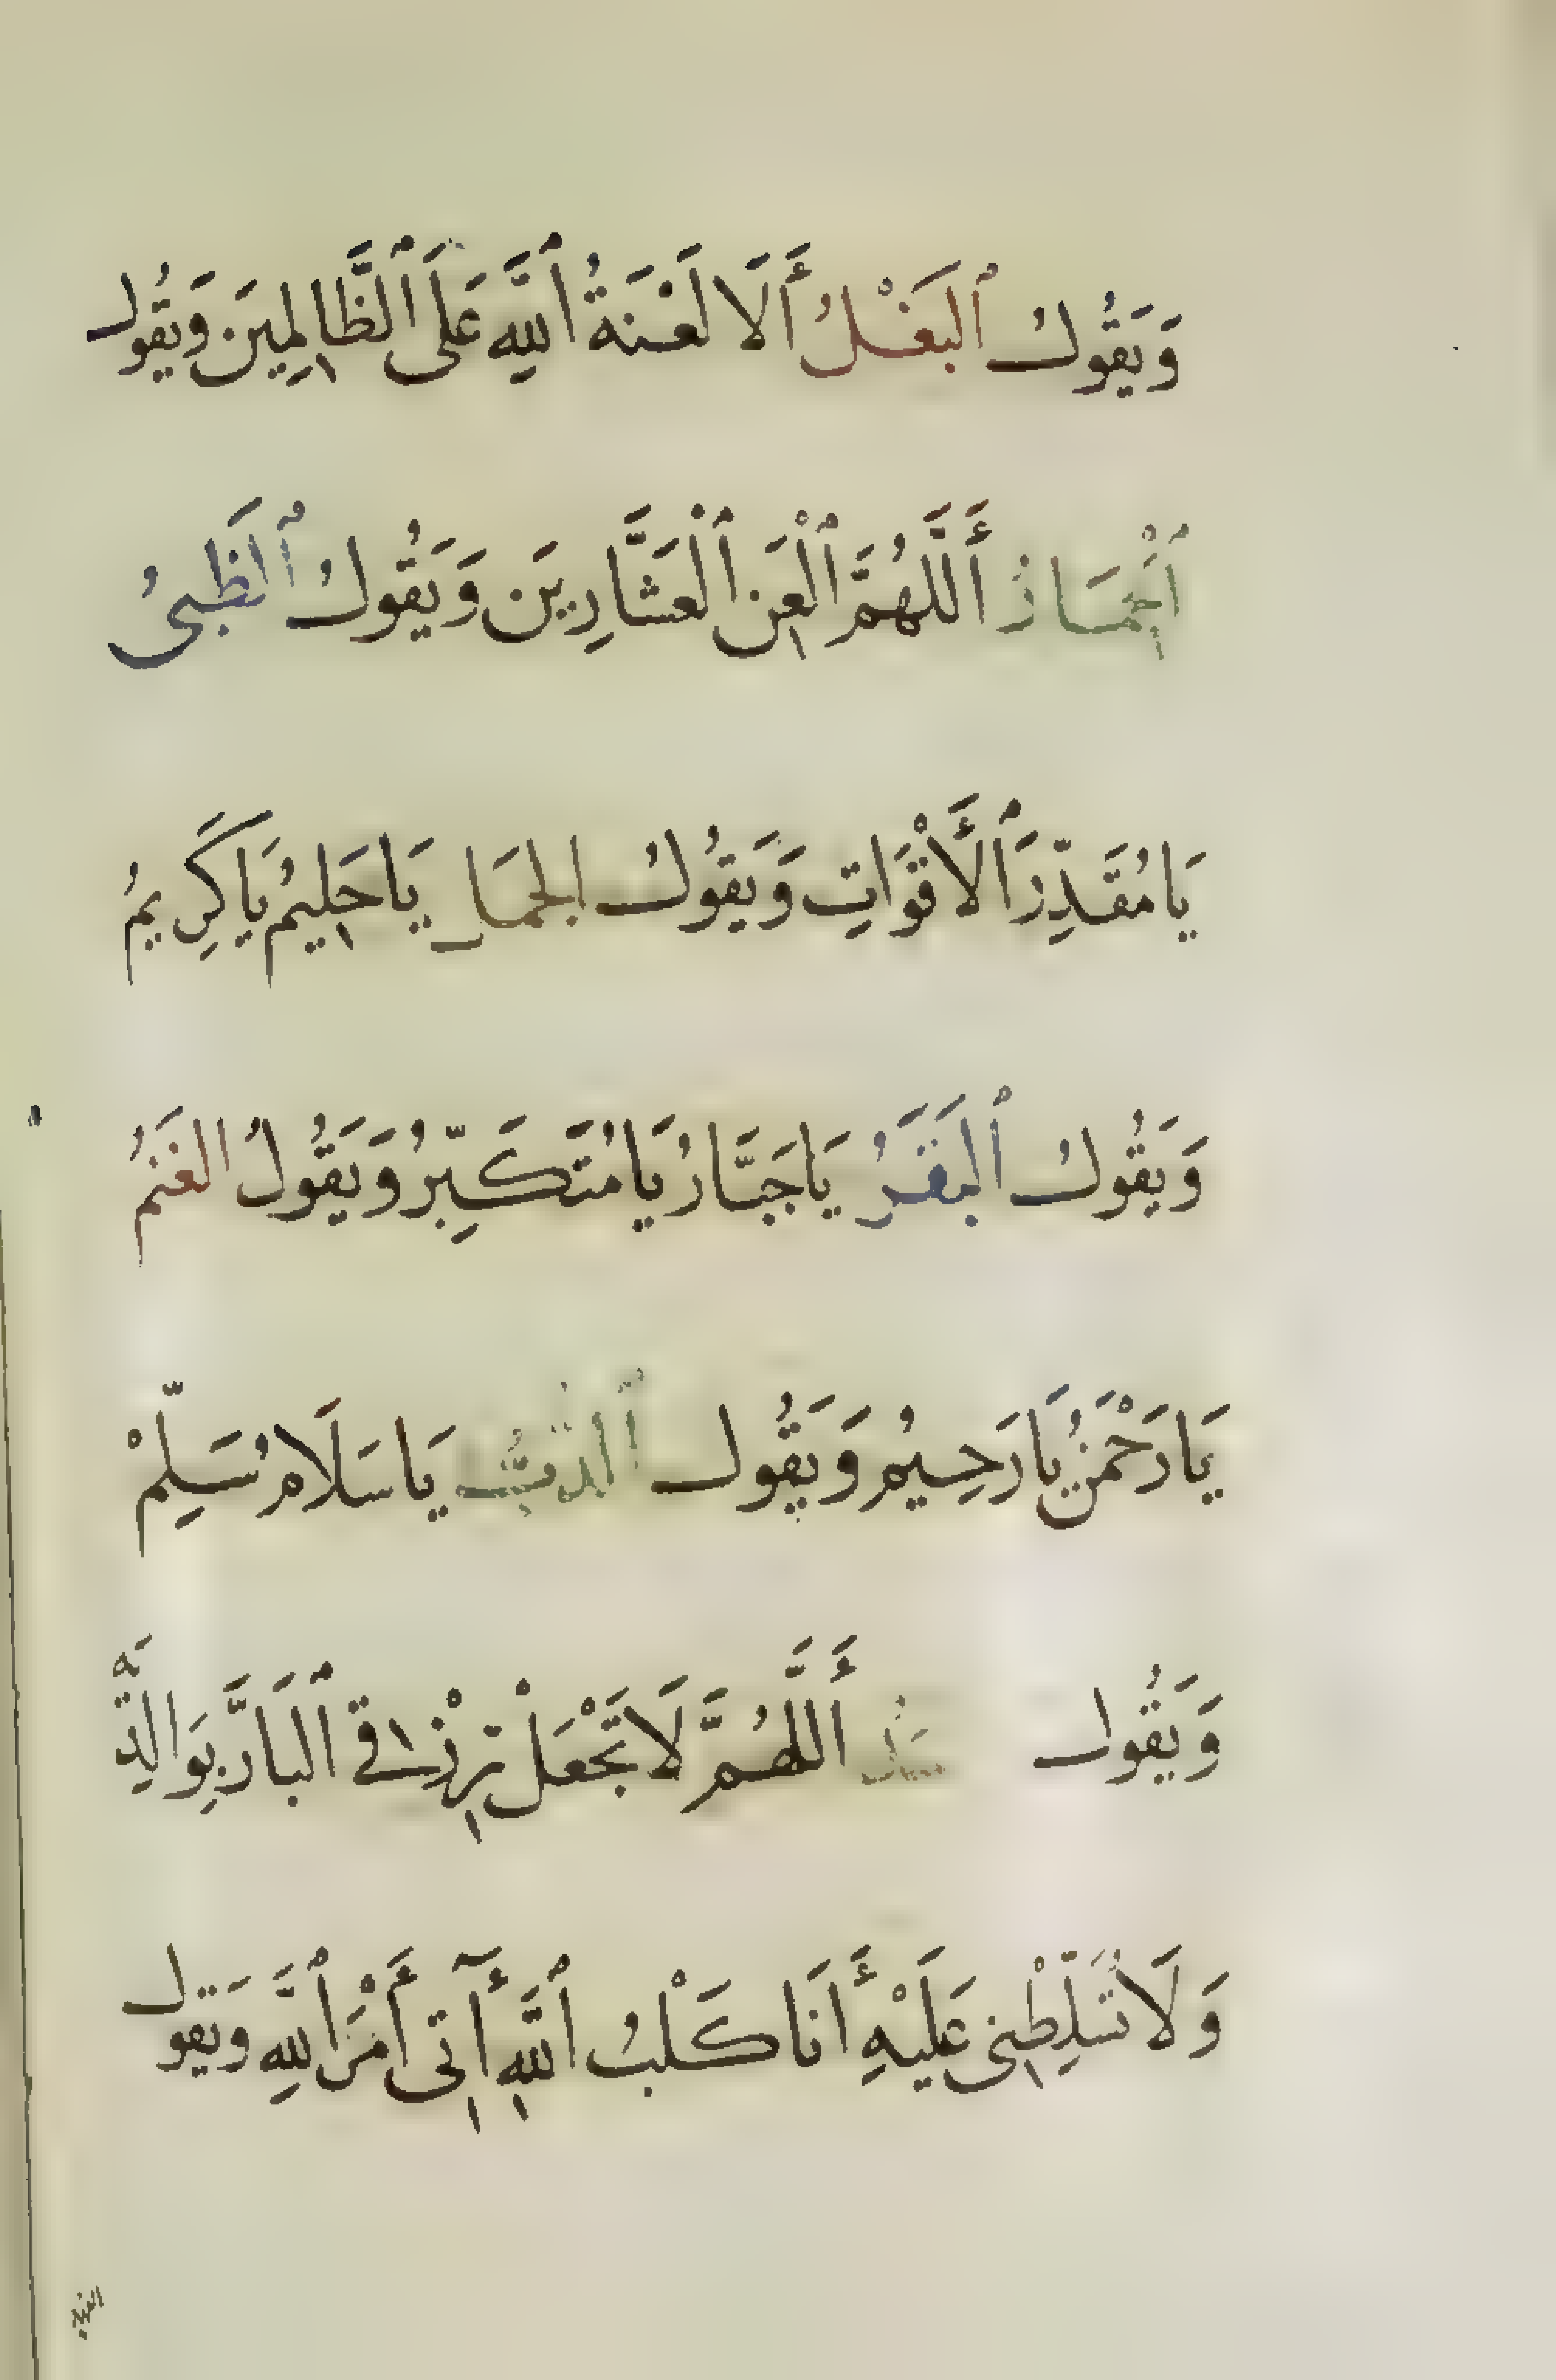 وَيَقُولُ ٱلبَغْلُ أَلَا لَعْنَةُ ٱللَّهِ عَلَى ٱلظَّالِمِينَ وَيَقُولُ
ٱلْحِمَارُ أَللَّهُمَّ ٱلْعَنِ ٱلْعَشَّارِينَ وَيَقُولُ ٱلظَبىُ
يَا مُقَدِّرَ ٱلْأَقْوَاتِ وَيَقُولُ الجمَل يَا حَلِيمُ يَا كَرِيمُ
وَيَقُولُ ٱلبَقَرُ يَا جَبَّارُ يَا مُتَكَبِّرُ وَيَقُولُ الغَنَمُ
يَا رَحْمَنُ يَا رَحِيمُ وَيَقُول ٱلدُّبُّ يَا سَلَامُ سَلِّمْ
وَيَقُول أَللَّهُمَّ لَا تَجْعَلْ رِزْقِى ٱلبَارَّ بِوَالِدَيْهِ
وَلَا تُسَلِّطْنِى عَلَيْهِ أَنَا كَلْبُ ٱللَّهِ أَآتِى أَمْرَ ٱللَّهِ وَيَقُول